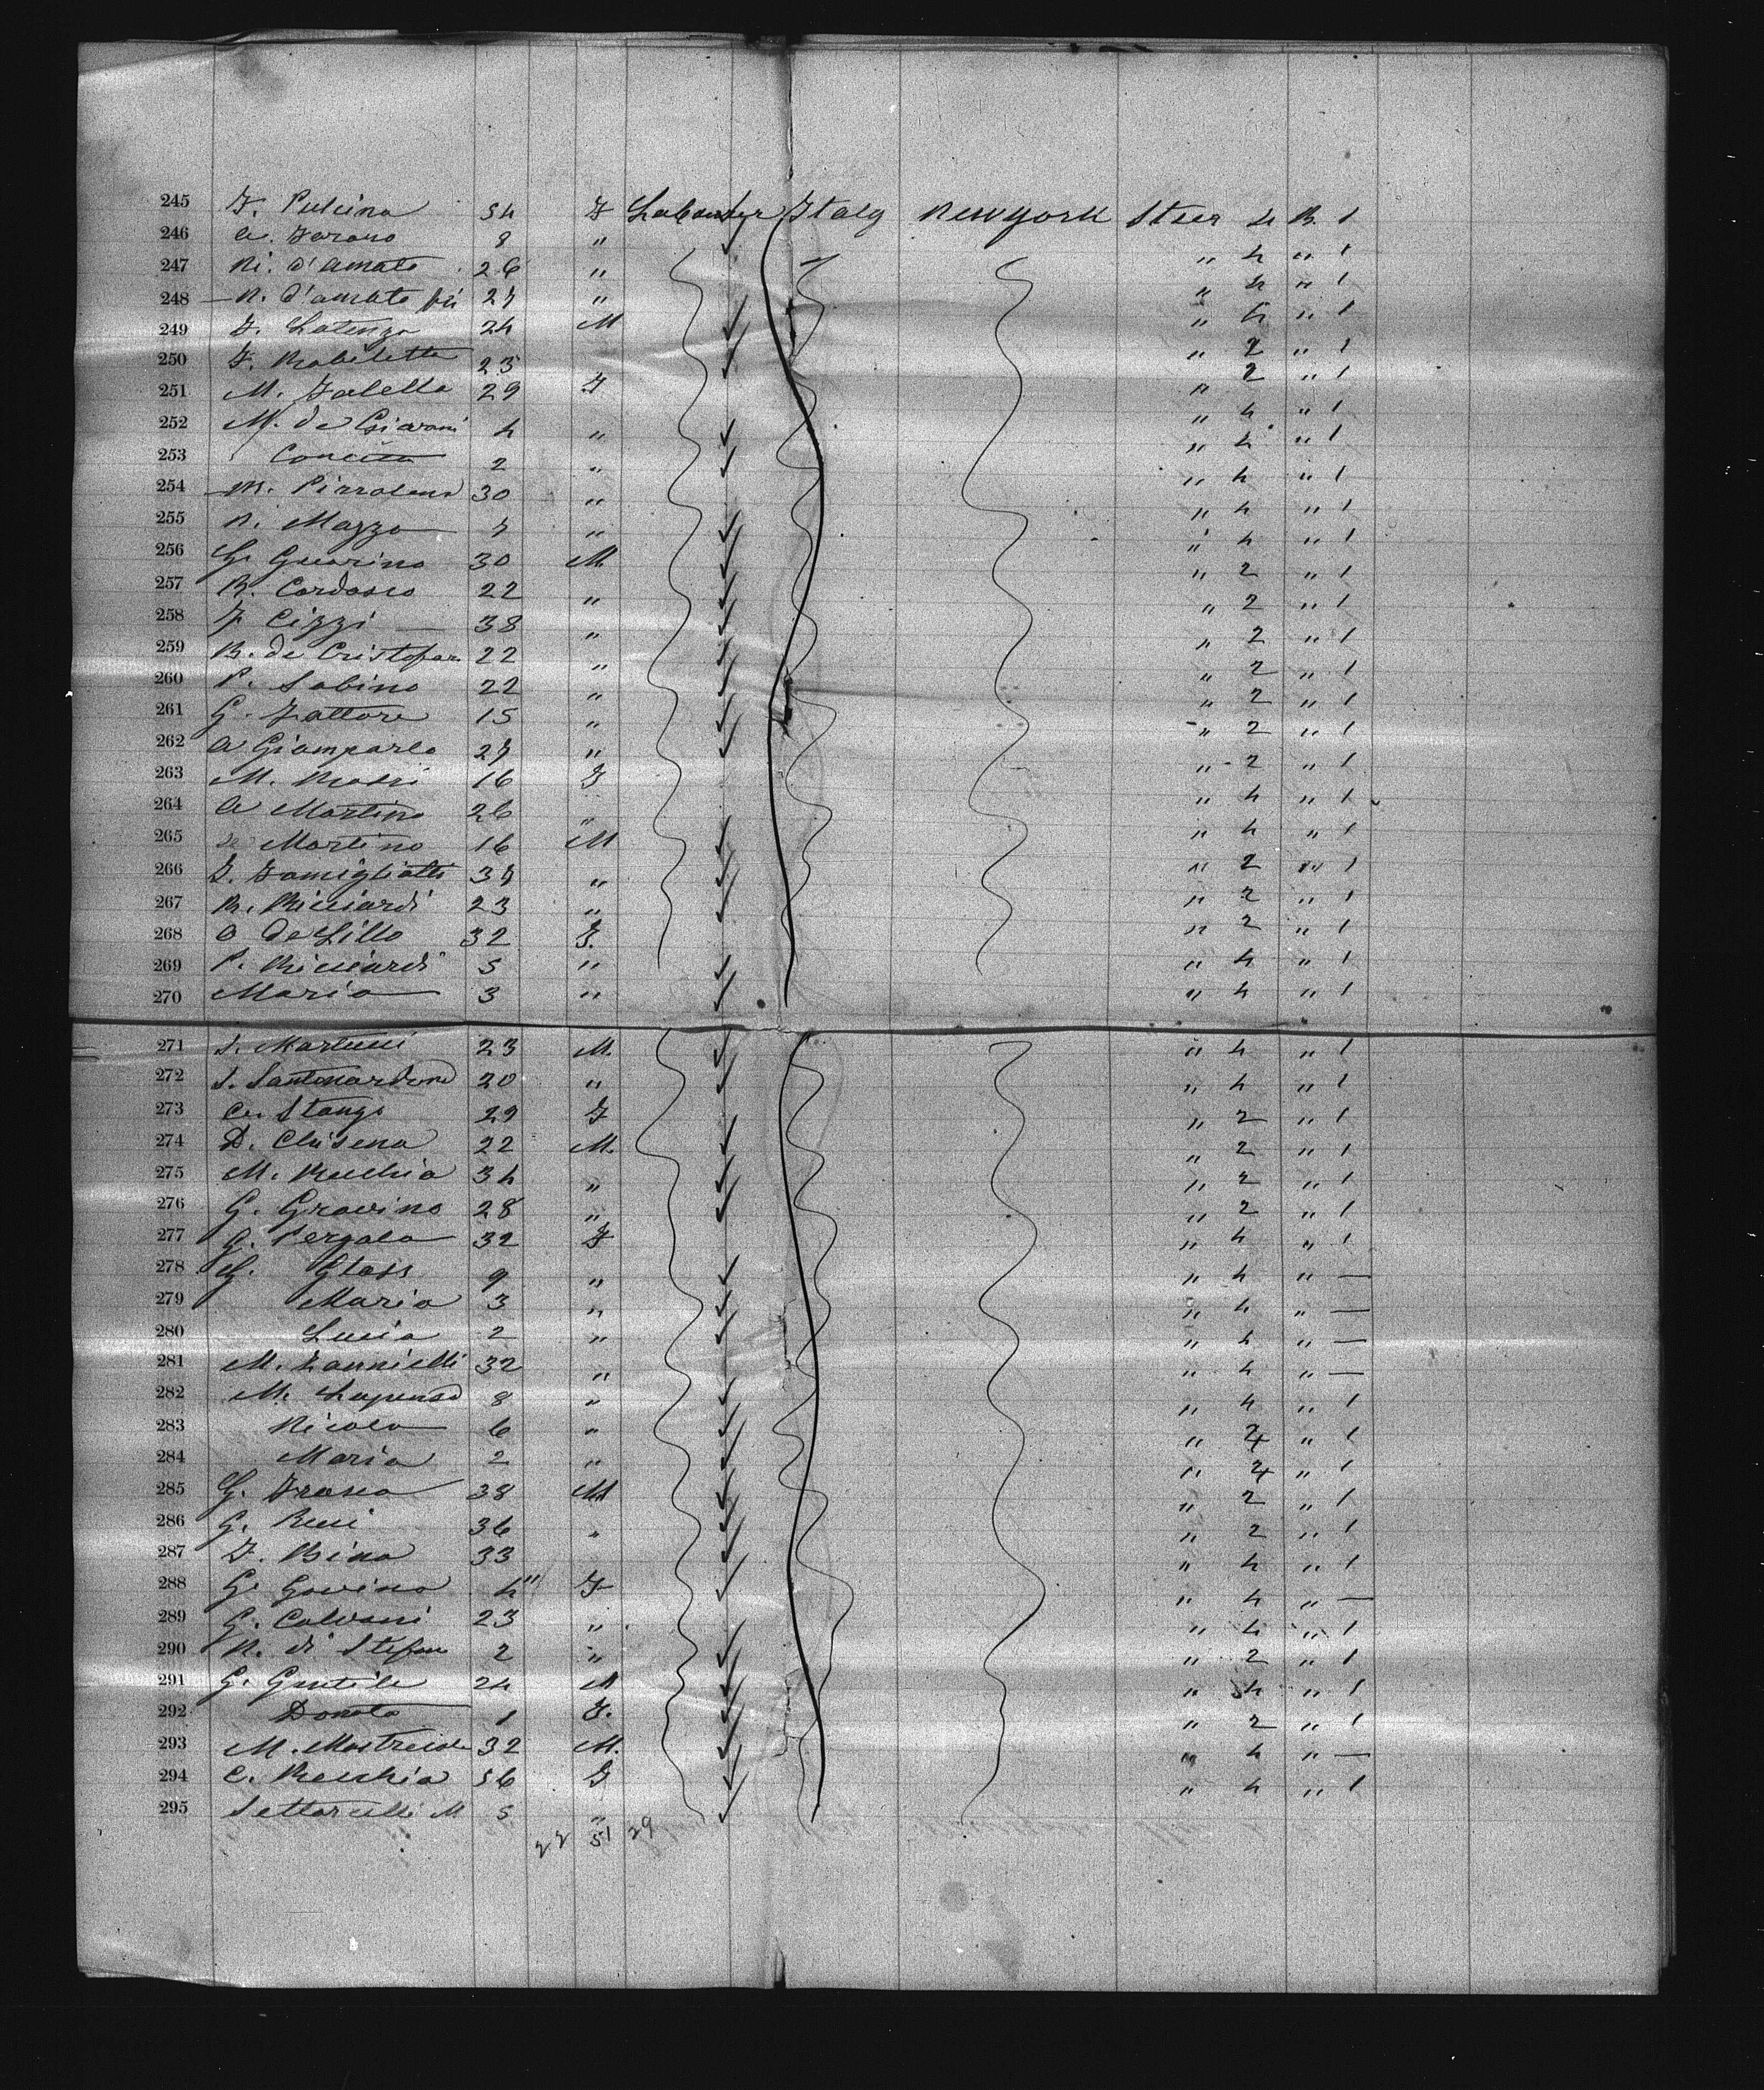 245 F. Pulcina 54 F Labourer Italy New York Steer 4 B. 1
246 A. Farano 8 " " 4 " 1
247 Ni. d'Amato 26 " " 4 " 1
248 N. d'Amato 27 " " 4 " 1
249 F. Latenza 24 M " 2 " 1
250 F. 23 " 2 " 1
251 M. Falella 29 F " 4 " 1
252 M. de Giovani 4 " " 4 " 1
253 Concetta 2 " " 4 " 1
254 M. 30 " " 4 " 1
255 N. Mazzo 7 " " 4 " 1
256 G. Guarino 30 M " 2 " 1
257 R. Cardasco 22 " " 2 " 1
258 F. Cizzi 38 " " 2 " 1
259 B. de Cristofar 22 " " 2 " 1
260 P. Sabino 22 " " 2 " 1
261 G. Fattore 15 " " 2 " 1
262 A Giamparlo 27 " " 2 " 1
263 M. 16 F " 4 " 1
264 A Martino 26 " " 4 " 1
265 Martino 16 M " 2 " 1
266 D. Famiglietti 37 " " 2 " 1
267 R. Ricciardi 23 " " 2 " 1
268 O de Lillo 32 F. " 4 " 1
269 P. Ricciardi 5 " " 4 " 1
270 Maria 3 "
271 S. Martucci 23 M. " 4 " 1
272 S. Santonardono 20 " " 4 " 1
273 Stango 29 F " 2 " 1
274 D. Chisena 22 M. " 2 " 1
275 M. Vecchia 34 " " 2 " 1
276 G. Gravino 28 " " 2 " 1
277 G. Pergola 32 F " 4 " 1
278 G. Glass 9 " " 4 " —
279 Maria 3 " " 4 " —
280 Lucia 2 " " 4 " —
281 M. Iannielli 32 " " 4 " —
282 M. 8 " " 4 " 1
283 Nicola 6 " " 4 " 1
284 Maria 2 " " 4 " 1
285 G. Frasca 38 M " 2 " 1
286 G. Ricci 36 " " 2 " 1
287 F. Bina 33 " 4 " 1
288 G. Govino 4 " F " 4 " —
289 G. Calvani 23 " " 4 " 1
290 N. di Stefano 2 " " 2 " 1
291 G. Gentile 24 M " 4 " 1
292 Donato 1 F. " 2 " 1
293 M. 32 M. " 4 " —
294 C. Vecchia 56 F " 4 " 1
295 Settarcelli M 5 "
22 51 29